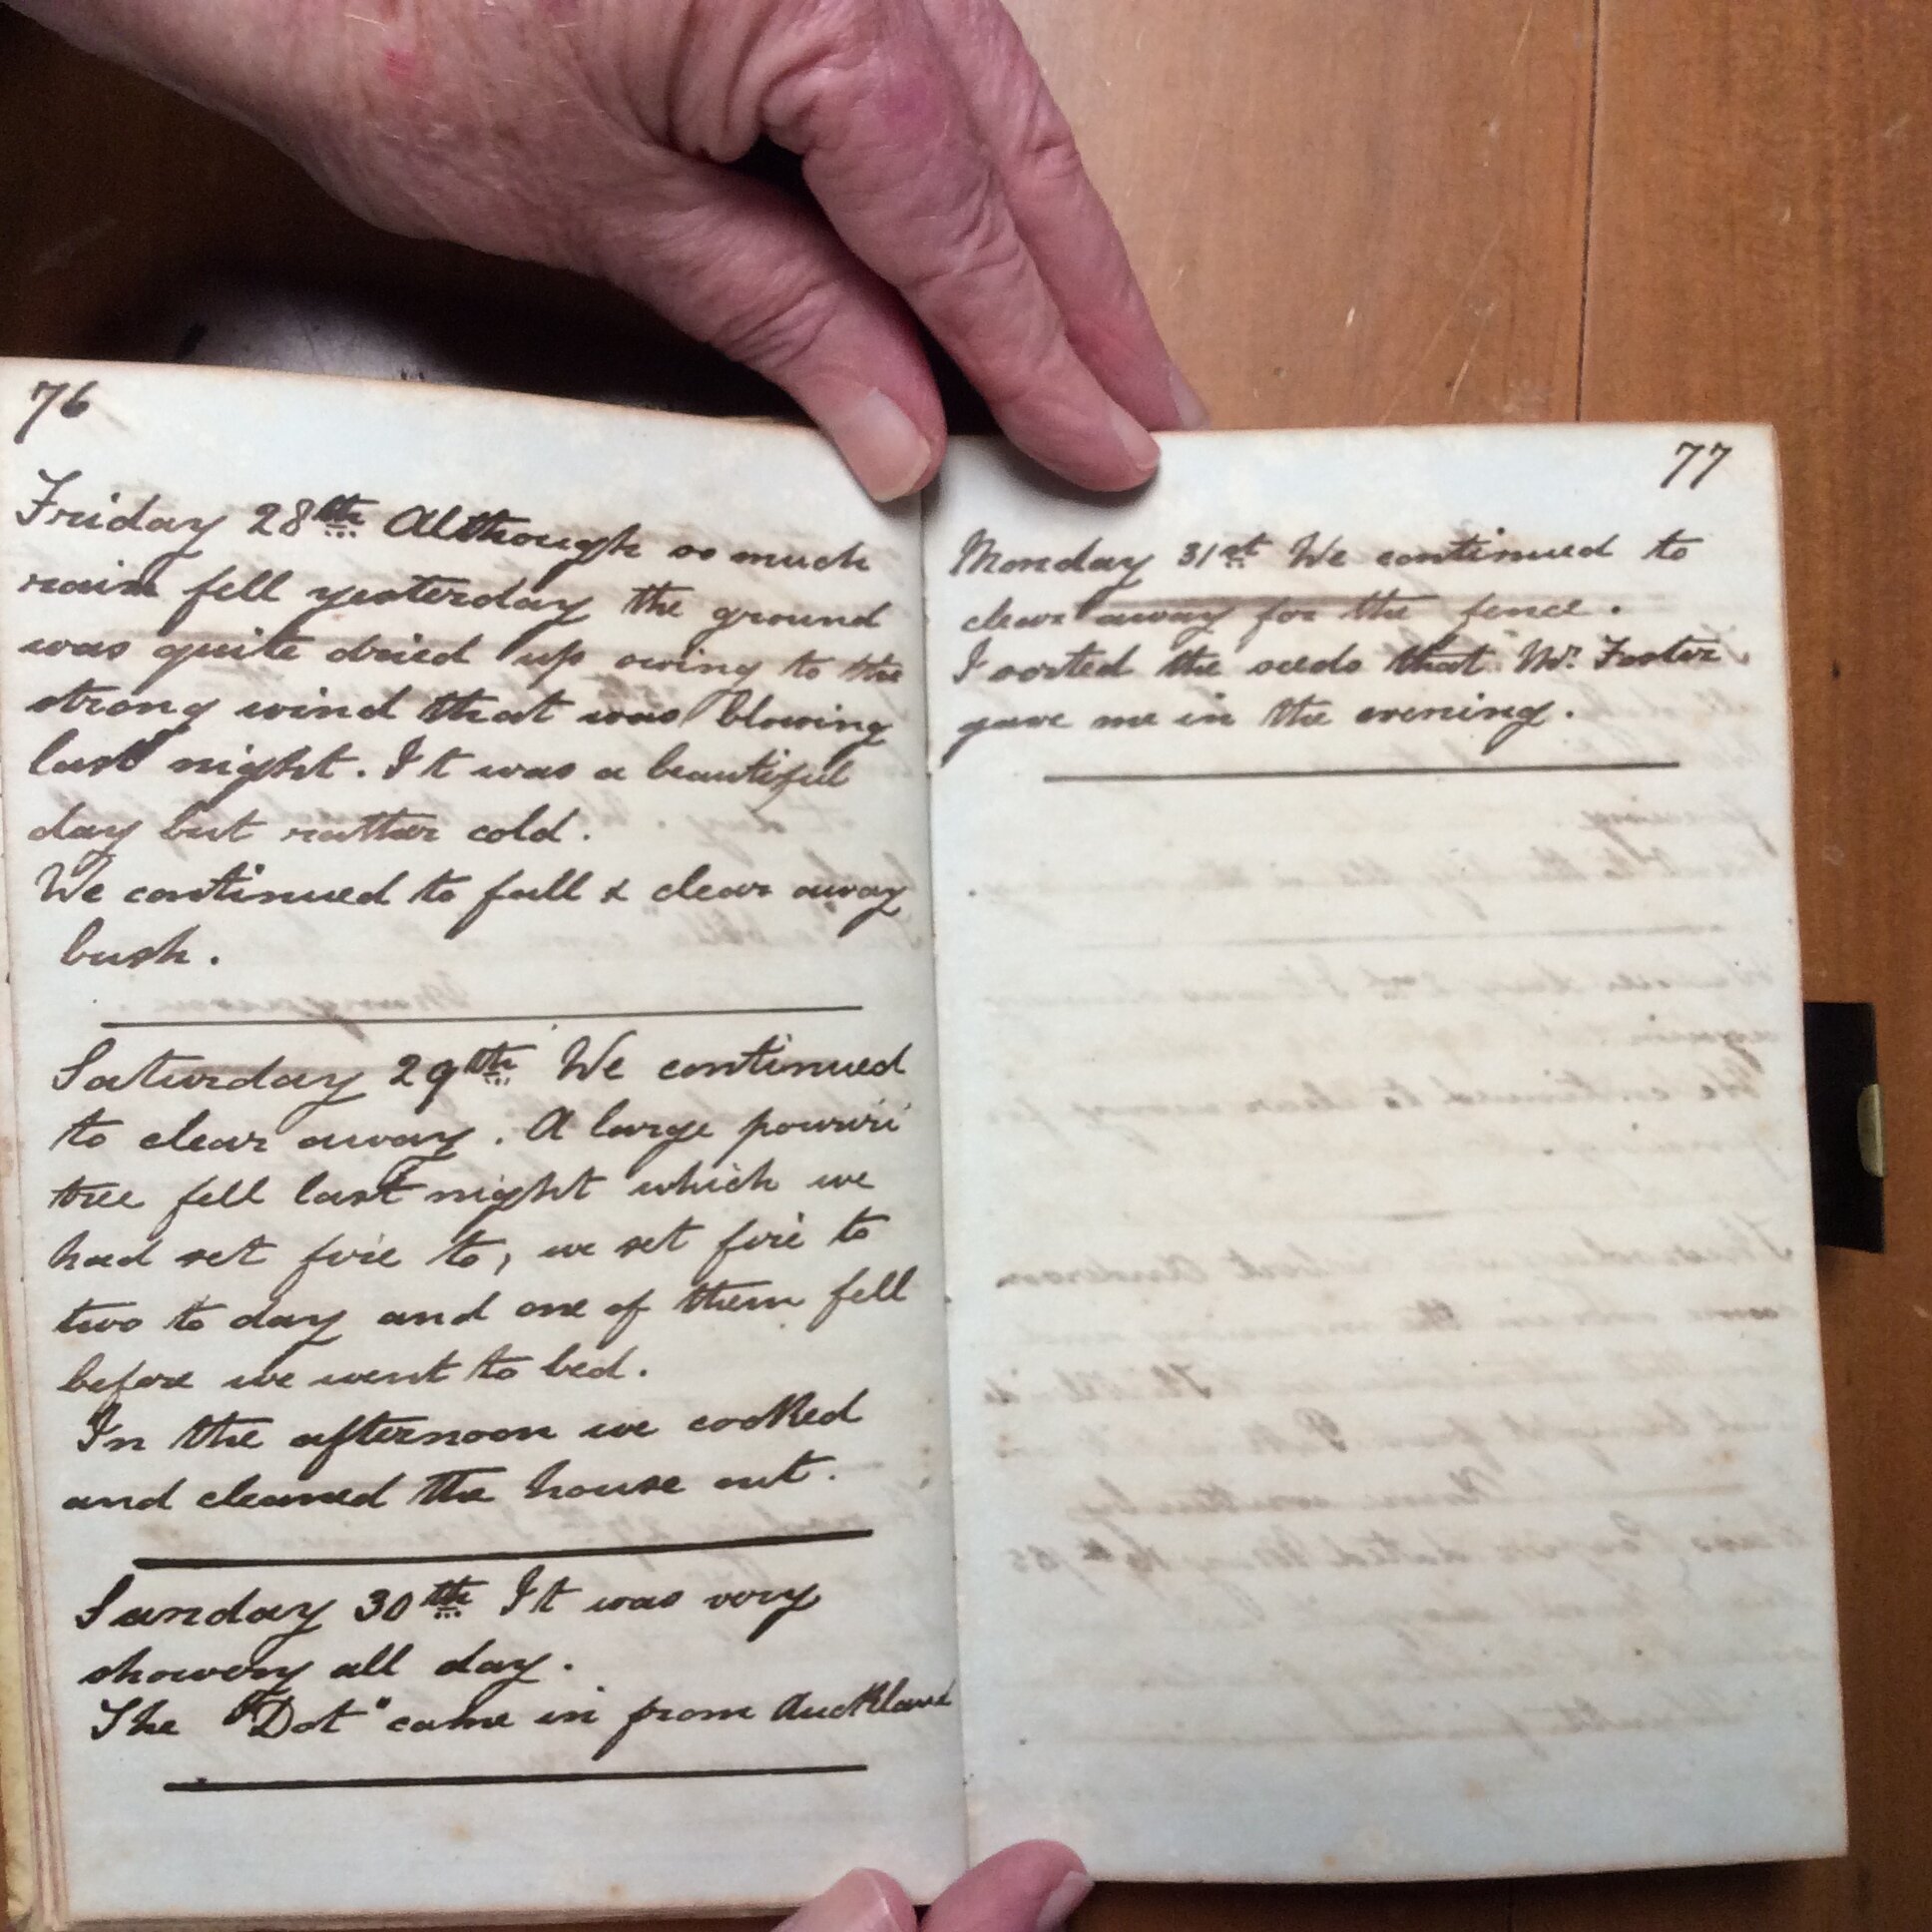 76
Friday 28th Although so much
rain fell yesterday the ground
was quite dried up owing to the
strong wind that was blowing
last night. It was a beautiful
day but rather cold.
We continued to fall & clear away
bush.
Saturday 29th We continued
to clear away. A large powriri
tree fell last night which we
had set fire to, we set fire to
two to day and one of them fell
before we went to bed.
In the afternoon we cooked
and cleaned the house out.
Sunday 30th It was very
showery all day.
The "Dot" came in from Auckland
77
Monday 31st We continued to
clear away for the fence.
I sorted the seeds that Mr. Foster
gave me in the evening.